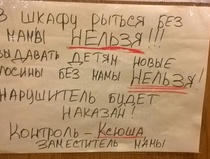 В ШКАФУ РЫТЬСЯ БЕЗ
МАМЫ НЕЛЬЗЯ!!!
ВЫДАВАТЬ ДЕТЯМ НОВЫЕ
ЛОСИНЫ БЕЗ МАМЫ НЕЛЬЗЯ!
НАРУШИТЕЛЬ БУДЕТ
НАКАЗАН!
КОНТРОЛЬ – КСЮША
ЗАМЕСТИТЕЛЬ МАМЫ